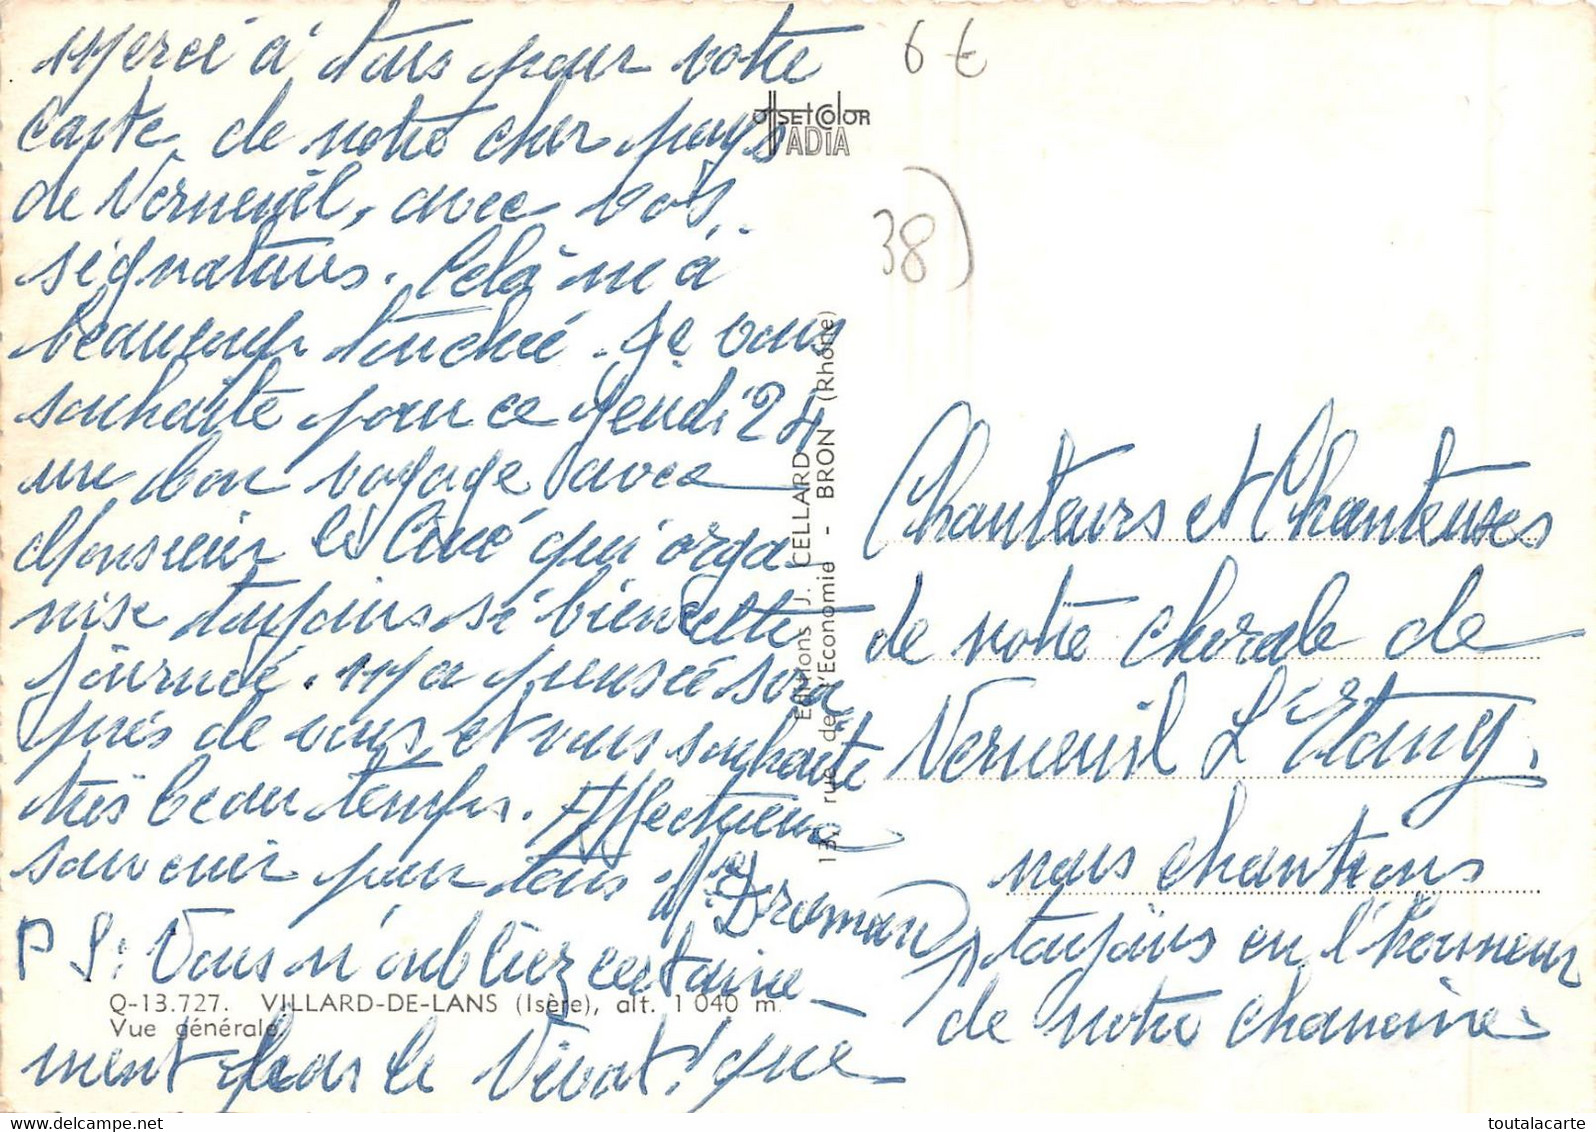 Merci à tous pour votre
carte de notre cher pays
de Verneuil, avec vos
signatures. Celà m'a
beaucoup touché. Je vous
souhaite pour ce Jeudi 24
un bon voyage avec
Monsieur le Curé qui orga-
nise toujours si bien cette
journée. Ma pensée sera
près de vous et vous souhaite
très beau temps. Affectueux
souvenir pour tous. Mme Droman
PS: Vous n'oubliez certaine-
ment pas le Vivat! que
6 €
OffsetColor
IADIA
38)
Editions J. CELLARD
13, rue de l'Economie - BRON (Rhône)
Chanteurs et Chanteuses
de notre chorale de
Verneuil L'Etang.
nous chantions
toujours en l'honneur
de notre chanoine
Q-13.727. VILLARD-DE-LANS (Isère), alt. 1 040 m.
Vue générale
toutalacarte.com